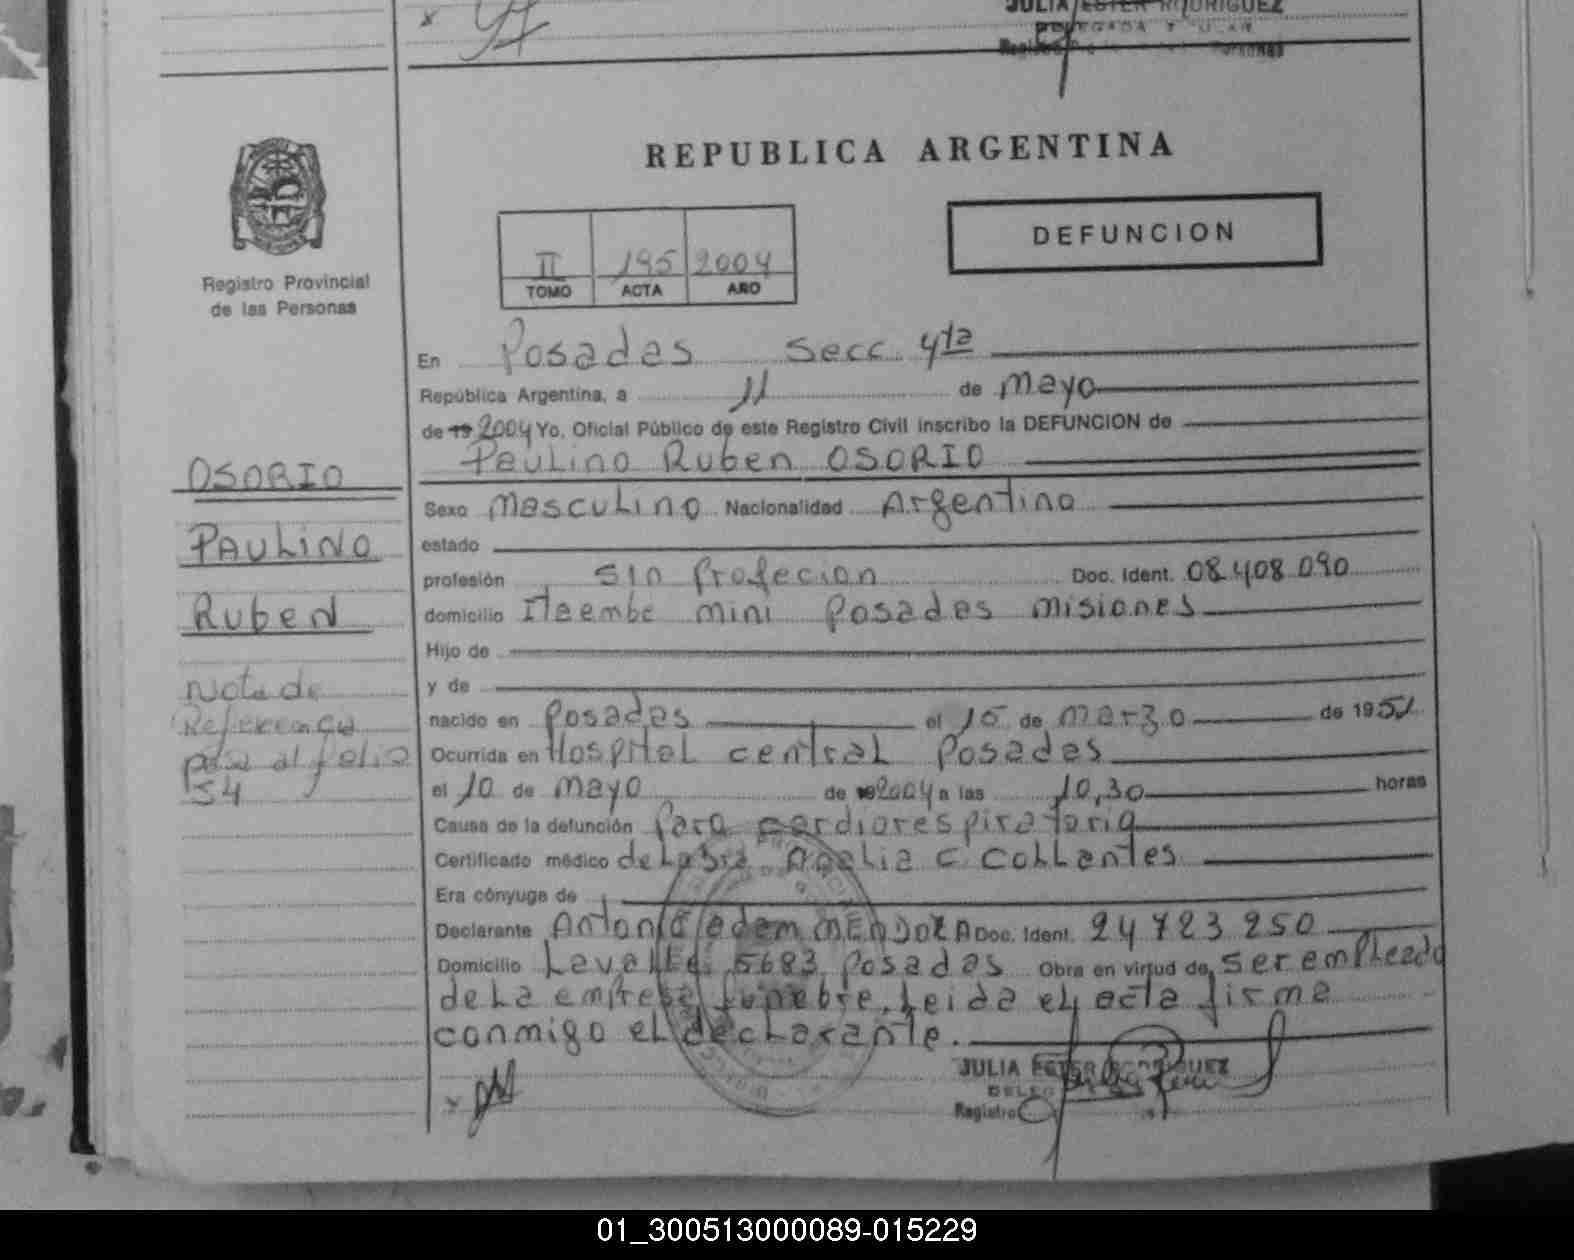 JULIA ESTER RODRIGUEZ
REPUBLICA ARGENTINA
DEFUNCION
II 195 2004
TOMO ACTA AÑO
Registro Provincial
de las Personas
En Posadas Secc. 4ta
República Argentina, a 11 de Mayo
de 19 2004 Yo, Oficial Público de este Registro Civil inscribo la DEFUNCION de
Paulino Ruben OSORIO
Sexo Masculino Nacionalidad Argentina
estado
profesión sin profecion Doc. Ident. 08.408.090
domicilio Itaembe mini Posadas Misiones
Hijo de
y de
nacido en Posadas el 15 de Marzo de 1951
Ocurrida en Hospital central Posadas
el 10 de Mayo de 2004 a las 10,30 horas
Causa de la defunción Paro cardiorespiratorio
Certificado médico de La Sra Analia C. Collantes
Era cónyuge de
Declarante Antonio MENDOZA Doc. Ident. 24 723 250
Domicilio Lavalle 5683 Posadas Obra en virtud de ser empleado
de La empresa funebre. Leida el acta firma
conmigo el declarante.
OSORIO
PAULINO
Ruben
Nota de
Referencia
pasa al folio
54
JULIA ESTER RODRIGUEZ
Registro
01_300513000089-015229